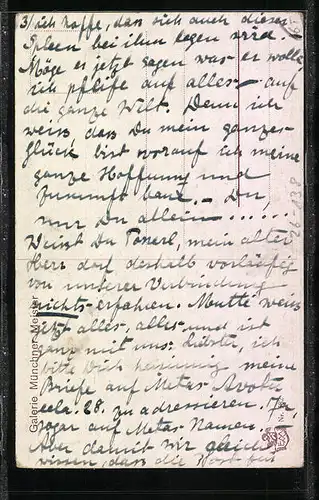 3) ich hoffe, dass sich auch dieses
Spleen bei ihm legen wird.
Möge er jetzt sagen was er wolle
ich pfeife auf alles – auf
die ganze Welt. Denn ich
weiss dass Du mein ganzes
Glück bist worauf ich meine
ganze Hoffnung und
Zukunft baue. – Du,
nur Du allein ......
Weisst Du Tonerl, mein alter
Herr darf deshalb vorläufig
von unserer Verbindung
nichts erfahren. Mutti weiss
jetzt alles, alles und ist
ganz mit uns. Liebste, ich
bitte Dich meine
Briefe auf Metas
28. zu adressieren. Ja,
sogar auf Metas Namen.
Aber damit wir gleich
wissen, dass die
Galerie Münchner Meister